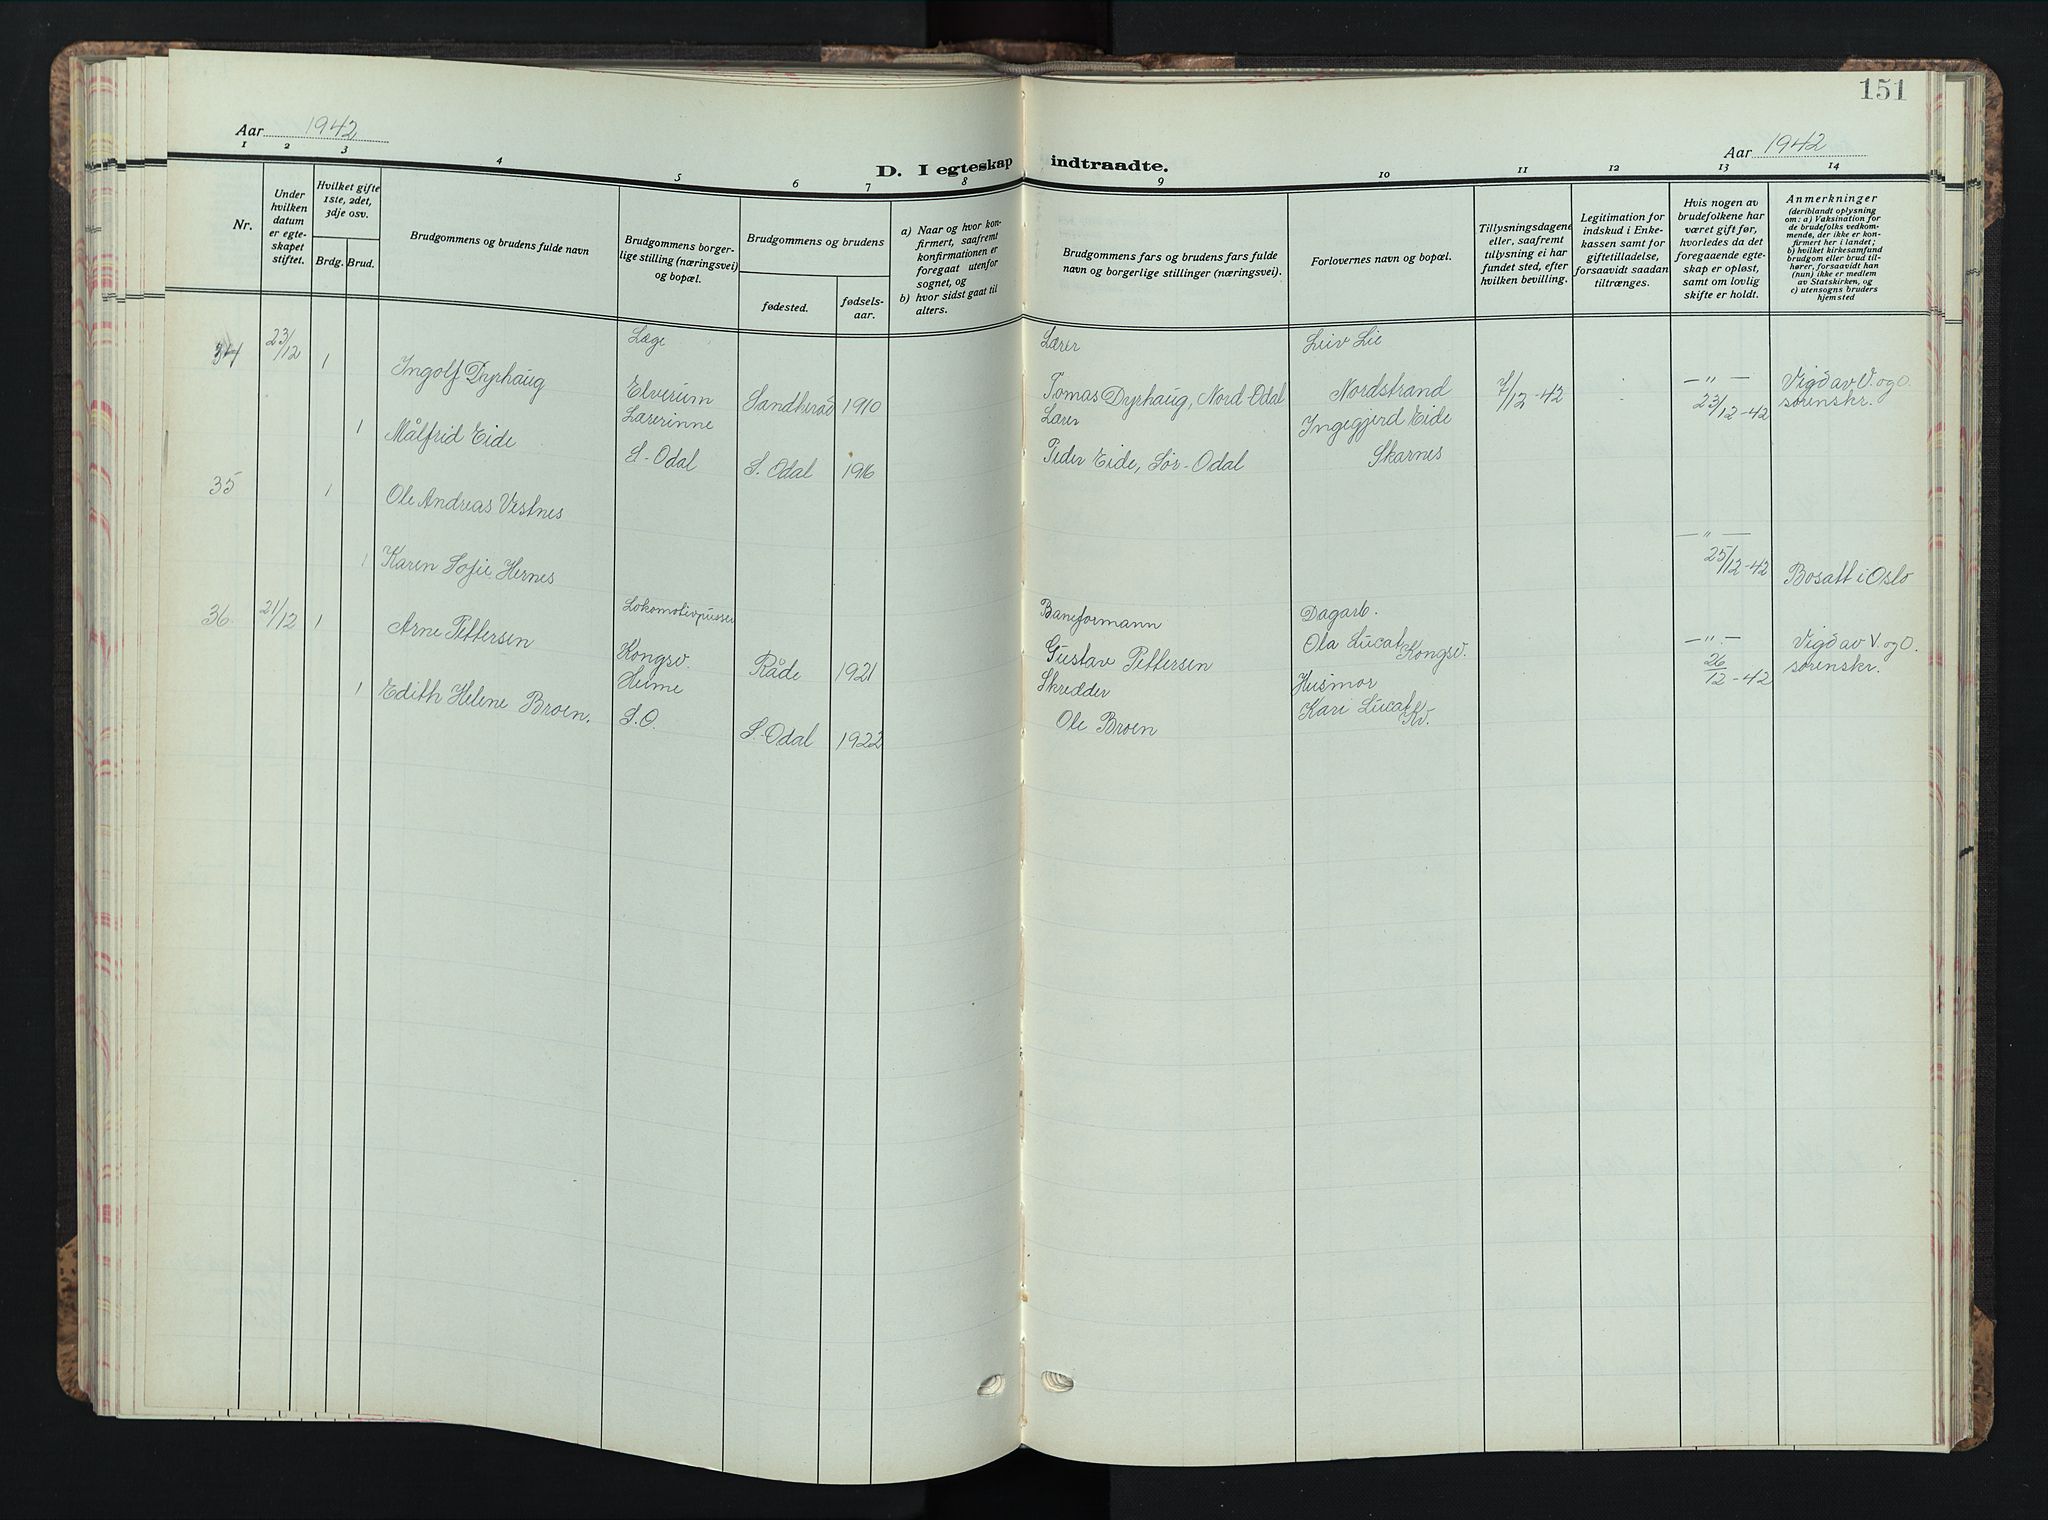 151
Aar 1942
Aar 1942
D. I egteskap indtraadte.
1 2 3 4 5 6 7 8 9 10 11 12 13 14
Nr.
Under hvilken datum er egteskapet stiftet.
Hvilket gifte 1ste, 2det, 3dje osv.
Brdg. Brud.
Brudgommens og brudens fulde navn
Brudgommens borgerlige stilling (næringsvei) og bopæl.
Brudgommens og brudens
fødested.
fødselsaar.
a) Naar og hvor konfirmert, saafremt konfirmationen er foregaat utenfor sognet, og
b) hvor sidst gaat til alters.
Brudgommens fars og brudens fars fulde navn og borgerlige stillinger (næringsvei).
Forlovernes navn og bopæl.
Tillysningsdagene eller, saafremt tillysning ei har fundet sted, efter hvilken bevilling.
Legitimation for indskud i Enkekassen samt for giftetilladelse, forsaavidt saadan tiltrænges.
Hvis nogen av brudefolkene har været gift før, hvorledes da det foregaaende egteskap er opløst, samt om lovlig skifte er holdt.
Anmerkninger (deriblandt oplysning om: a) Vaksination for de brudefolks vedkommende, der ikke er konfirmert her i landet; b) hvilket kirkesamfund brudgom eller brud tilhører, forsaavidt han (hun) ikke er medlem av Statskirken, og c) utensogns bruders hjemsted
34 23/12 1 Læge Lærer Leiv Lie
Ingolf Dyrhaug Elverum Sandherad 1910 Tomas Dyrhaug, Nord-Odal Nordstrand 7/12-42 —"— 23/12-42 Vigd av V. og O. sorenskr.
1 Lærerinne Lærer Ingegjerd Eide
Målfrid Eide S-Odal S. Odal 1916 Peder Eide, Sør-Odal Skarnes
35 1 Ole Andreas Vestnes
—"—
1 Karen Sofie Hernes 25/12-42 Bosatt i Oslo
36. 21/12 1 Lokomotivpusser Baneformann Dagarb.
Arne Pettersen Kongsv. Råde 1921 Gustav Pettersen Ola Lucat Kongsv. —"— 26/12-42 Vigd av V. og O. sorenskr.
1 Heime Skredder Husmor
Edith Helene Broen. S.O. S-Odal 1922 Ole Broen Kari Lucat Kv.